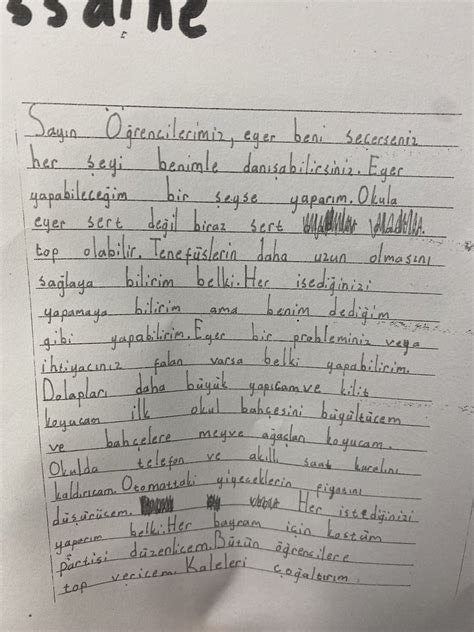 ssaine
Sayın Öğrencilerimiz, eger beni seçerseniz
her şeyi benimle danışabilirsiniz. Eger
yapabileceğim bir şeyse yaparım. Okula
eyer sert değil biraz sert
top olabilir. Tenefüslerin daha uzun olmasını
sağlaya bilirim belki. Her isediğinizi
yapamaya bilirim ama benim dediğim
gibi yapabilirim. Eger bir probleminiz veya
ihtiyacınız falan varsa belki yapabilirim.
Dolapları daha büyük yapıcam ve kilit
koyucam ilk okul bahçesini büyültücem
ve bahçelere meyve ağaçları koyucam.
Okulda telefon ve akıllı saat kuralını
kaldırıcam. Otomattaki yiyeceklerin fiyasını
düşürücem. Her istediğinizi
yaparım belki. Her bayram için kostüm
partisi düzenlicem. Bütün öğrencilere
top vericem. Kaleleri çoğaltırım.